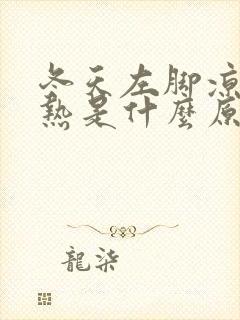 冬天左脚凉
热是什麼原
龍柒